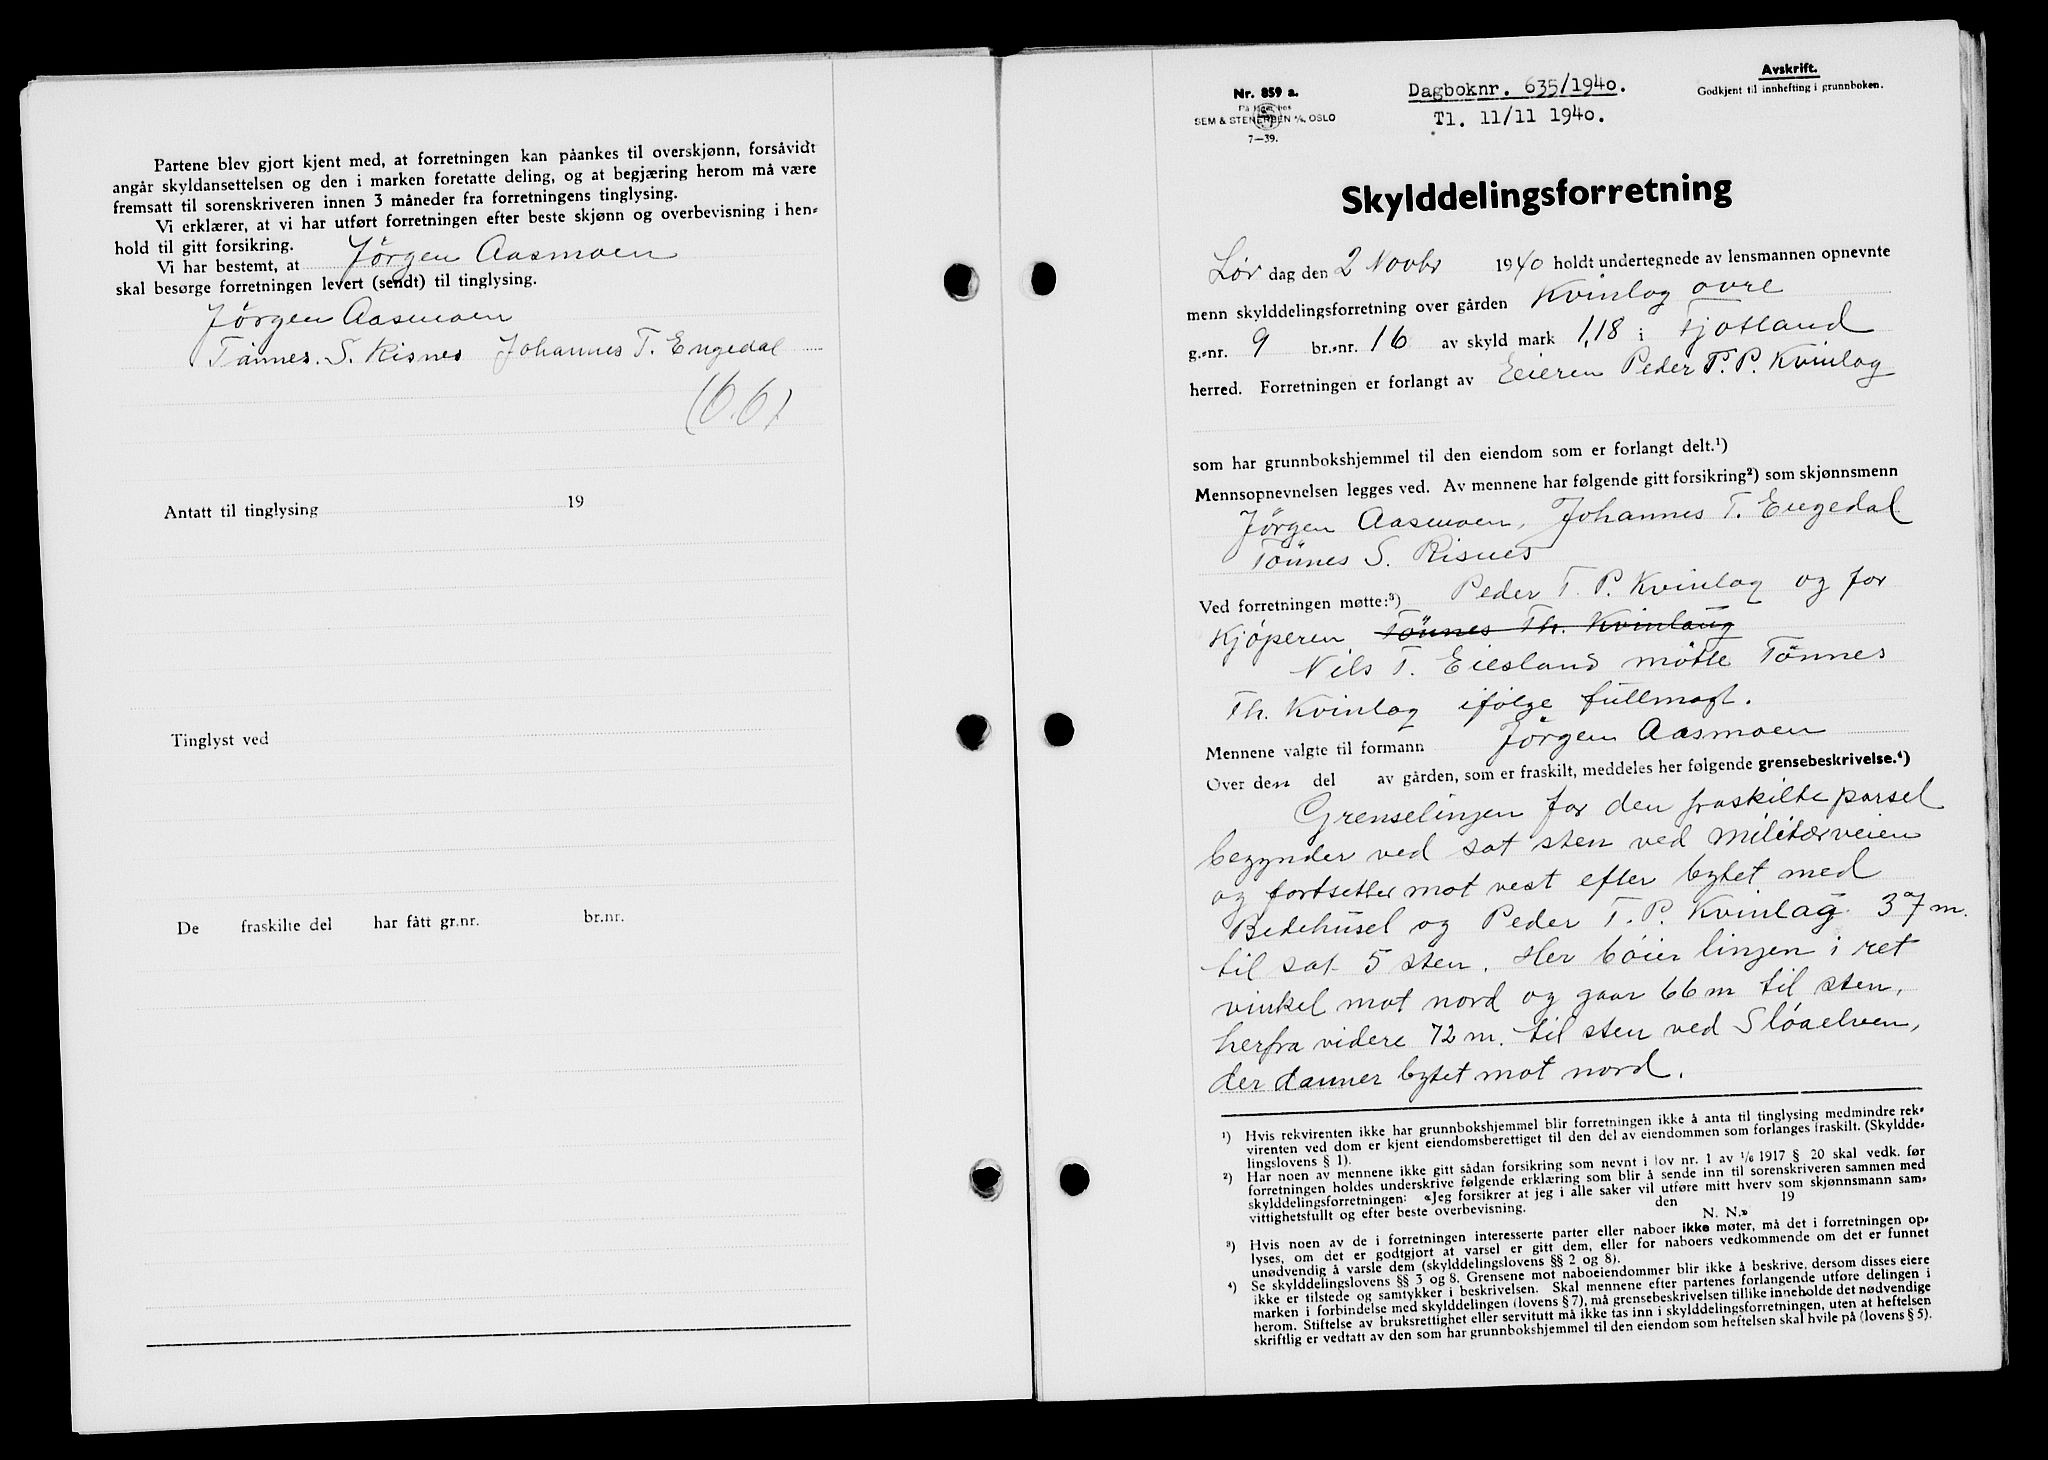 Partene blev gjort kjent med, at forretningen kan påankes til overskjønn, forsåvidt
angår skyldansettelsen og den i marken foretatte deling, og at begjæring herom må være
fremsatt til sorenskriveren innen 3 måneder fra forretningens tinglysing.
Vi erklærer, at vi har utført forretningen efter beste skjønn og overbevisning i hen-
hold til gitt forsikring.
Vi har bestemt, at Jørgen Aasmoen
skal besørge forretningen levert (sendt) til tinglysing.
Jørgen Aasmoen
Tönnes. S. Risnes Johannes T. Engedal
(6.6)
Antatt til tinglysing 19
Tinglyst ved
De fraskilte del har fått gr.nr. br.nr.
Nr. 859 a.
På lager hos
SEM & STENERSEN A/S, OSLO
7—39.
Dagboknr. 635/1940.
Tl. 11/11 1940.
Avskrift.
Godkjent til innhefting i grunnboken.
Skylddelingsforretning
Lør dag den 2 Novbr 1940 holdt undertegnede av lensmannen opnevnte
menn skylddelingsforretning over gården Kvinlog øvre
g.-nr. 9 br.-nr. 16 av skyld mark 1,18 i Fjotland
herred. Forretningen er forlangt av Eieren Peder T. P. Kvinlog
som har grunnbokshjemmel til den eiendom som er forlangt delt.¹)
Mennsopnevnelsen legges ved. Av mennene har følgende gitt forsikring²) som skjønnsmenn
Jørgen Aasmoen, Johannes T. Engedal
Tönnes S. Risnes
Ved forretningen møtte:³) Peder T. P. Kvinlog og for
Kjøperen Tönnes Th. Kvinlaug
Nils T. Eiesland møtte Tönnes
Th. Kvinlog ifølge fullmagt.
Mennene valgte til formann Jörgen Aasmoen
Over den del av gården, som er fraskilt, meddeles her følgende grensebeskrivelse.⁴)
Grenselinjen for den fraskilte parsel
begynder ved sat sten ved militærveien
og fortsetter mot vest efter bytet med
Bedehuset og Peder T. P. Kvinlag. 37 m.
til sat 5 sten. Her bøier linjen i ret
vinkel mot nord og gaar 66 m til sten,
herfra videre 72 m. til sten ved Sløaelven,
der danner bytet mot nord.
¹) Hvis rekvirenten ikke har grunnbokshjemmel blir forretningen ikke å anta til tinglysing medmindre rek-
virenten ved dom er kjent eiendomsberettiget til den del av eiendommen som forlanges fraskilt. (Skyldde-
lingslovens § 1).
²) Har noen av mennene ikke gitt sådan forsikring som nevnt i lov nr. 1 av 1/6 1917 § 20 skal vedk. før
forretningen holdes underskrive følgende erklæring som blir å sende inn til sorenskriveren sammen med
skylddelingsforretningen: «Jeg forsikrer at jeg i alle saker vil utføre mitt hverv som skjønnsmann sam-
vittighetsfullt og efter beste overbevisning. den 19
N. N.»
³) Hvis noen av de i forretningen interesserte parter eller naboer ikke møter, må det i forretningen op-
lyses, om det er godtgjort at varsel er gitt dem, eller for naboers vedkommende om det er funnet
unødvendig å varsle dem (skylddelingslovens §§ 2 og 8).
⁴) Se skylddelingslovens §§ 3 og 8. Grensene mot naboeiendommer blir ikke å beskrive, dersom disses eiere
ikke er tilstede og samtykker i beskrivelsen. Skal mennene efter partenes forlangende utføre delingen i
marken i forbindelse med skylddelingen (lovens § 7), må grensebeskrivelsen tillike inneholde det nødvendige
herom. Stiftelse av bruksrettighet eller servitutt må ikke tas inn i skylddelingsforretningen, uten at heftelsen
skriftlig er vedtatt av den som har grunnbokshjemmel til den eiendom som heftelsen skal hvile på (lovens § 5).